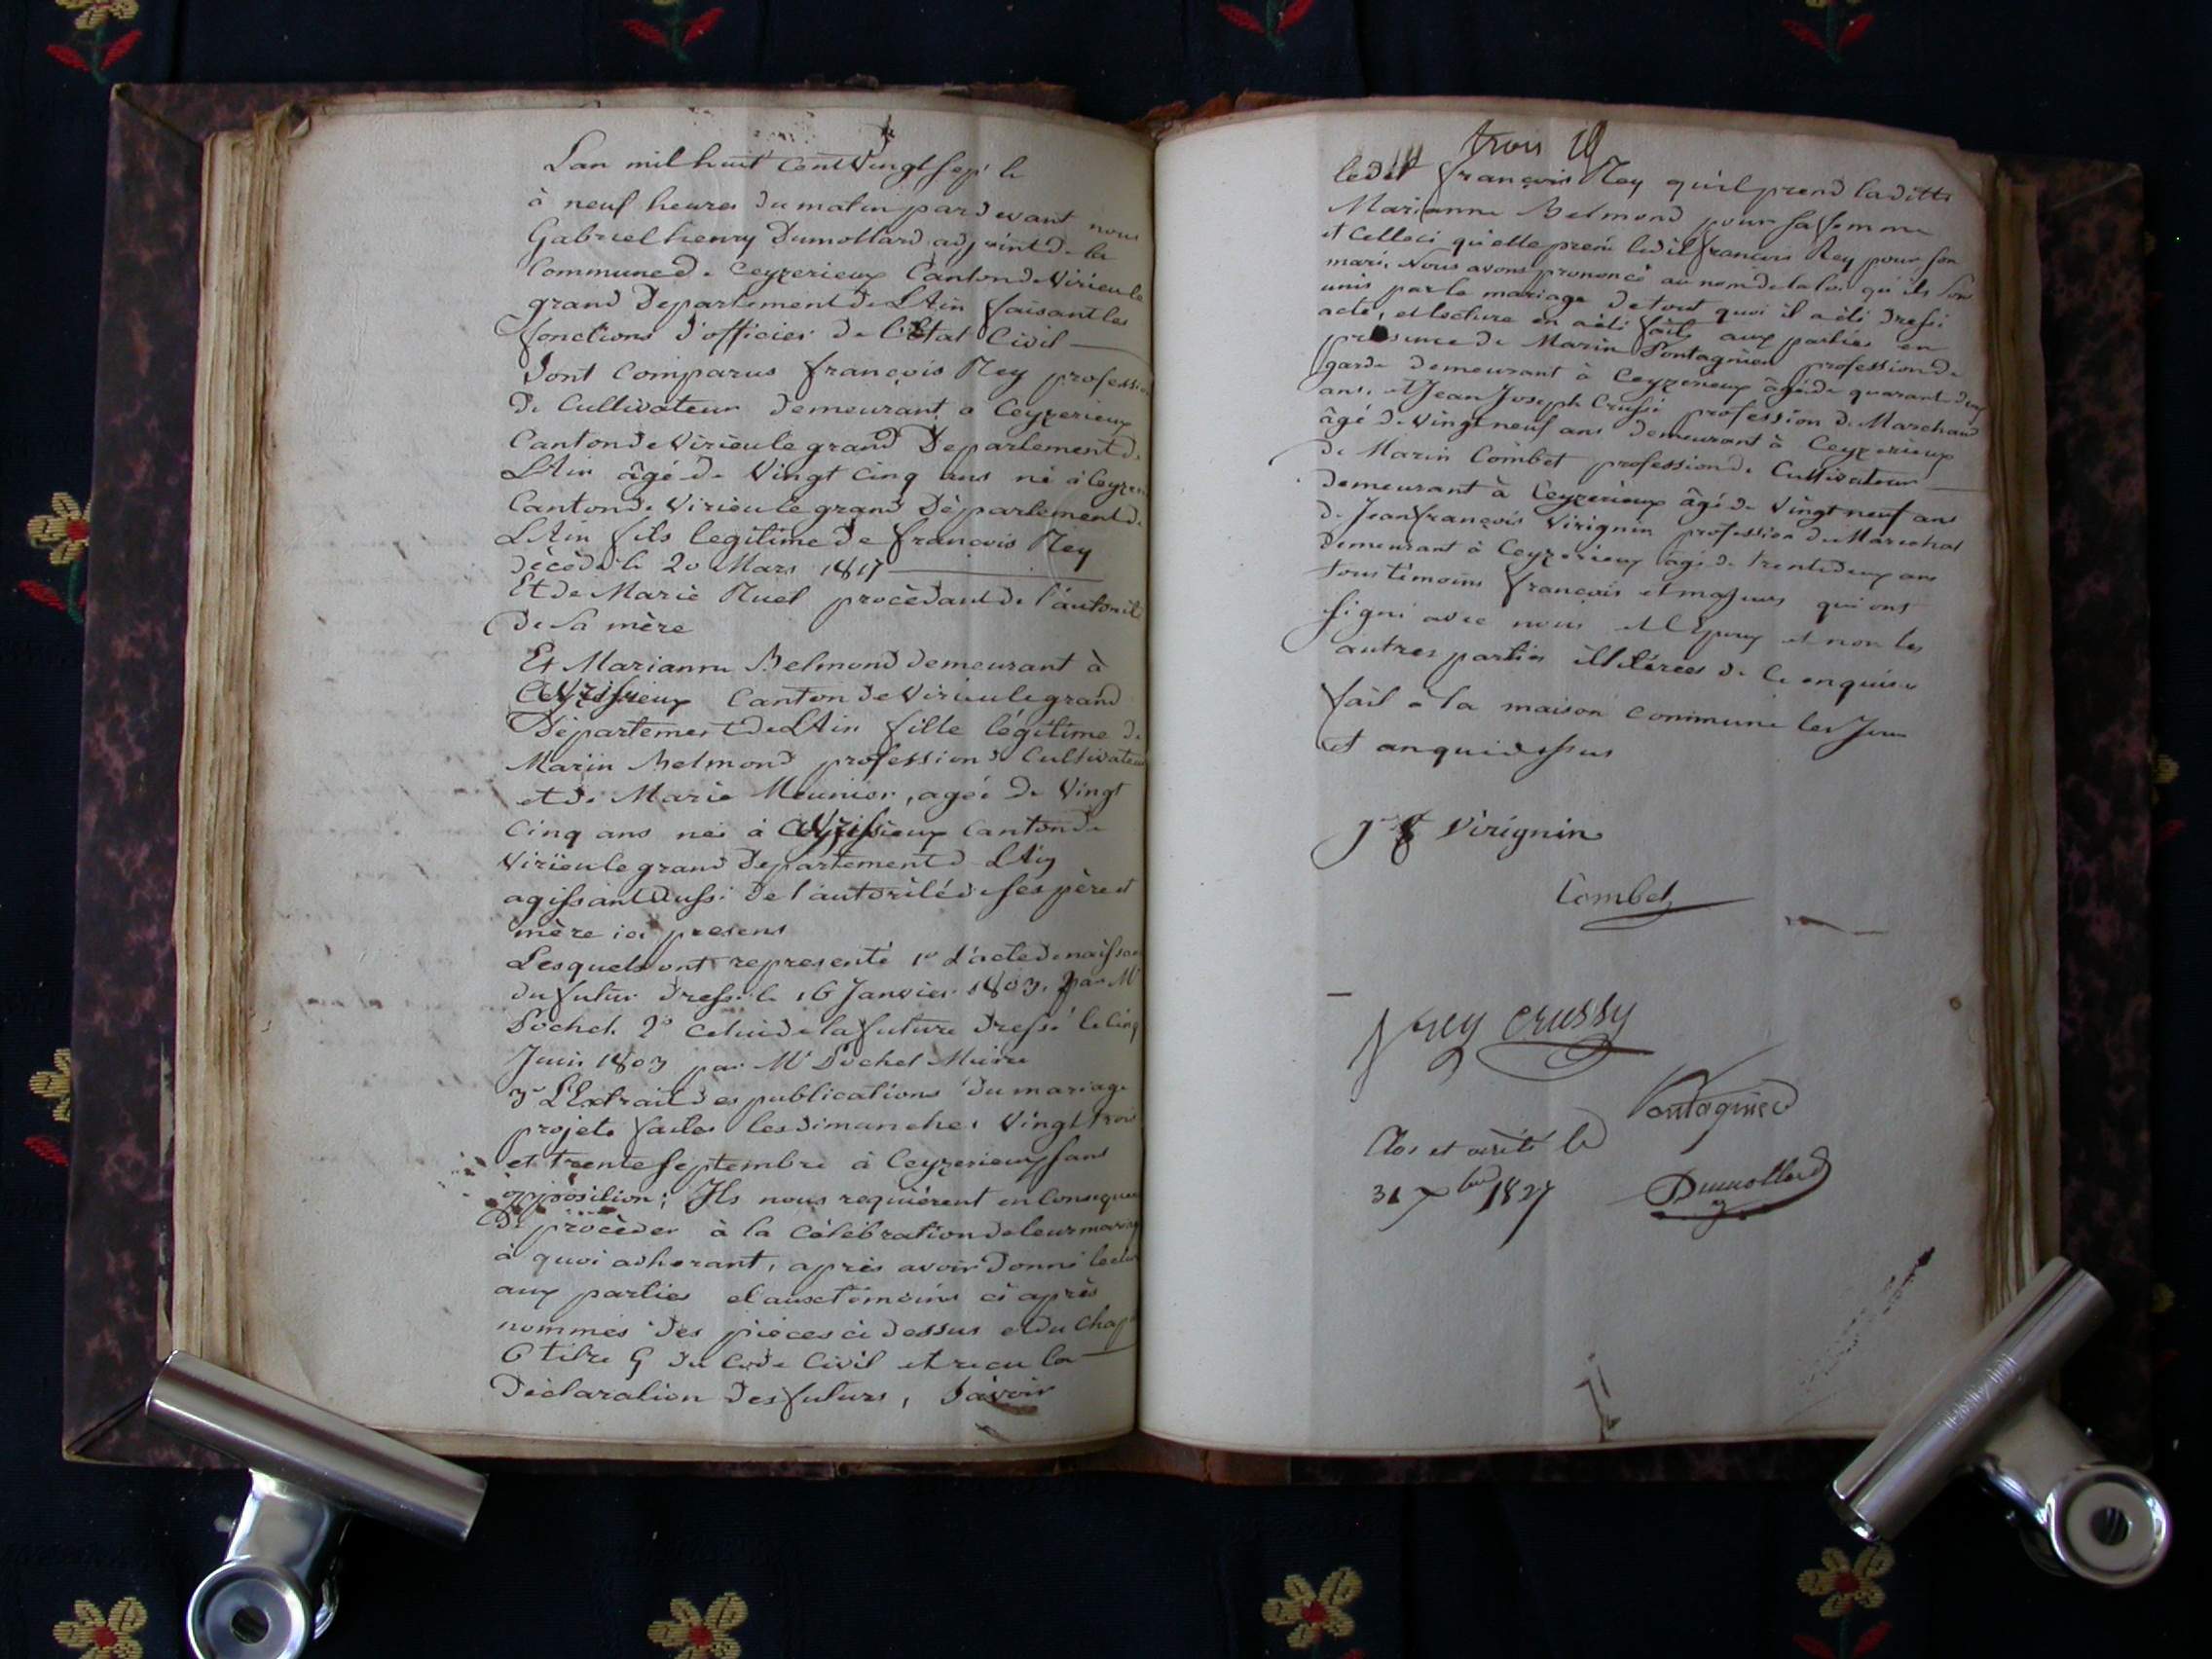 Lan mil huit Cent Vingt sept le
à neuf heures du matin pardevant nous
Gabriel henry Dumollard adjoint de la
Commune de Ceyzerieux Canton de Virieu le
grand Departement de L'Ain faisant les
fonctions d'officier de l'Etat Civil
Sont Comparus françois Rey profession
de Cultivateur demeurant a Ceyzerieux
Canton de Virieu le grand Departement de
L'Ain âgé de Vingt Cinq ans né à Ceyzer
Canton de Virieu le grand Departement de
L'Ain fils legitime de françois Rey
décédé le 20 Mars 1817
Et de Marie Ruet procèdant de l'autorité
de sa mère
Et Marianne Belmond demeurant à
Canton de Virieu le grand
Departement de L'Ain fille légitime de
Marin Belmond profession de Cultivateur
et de Marie Meunier, agée de Vingt
Cinq ans née à Canton de
Virieu le grand Departement de L'Ain
agissant aussi de l'autorité de ses père et
mère ici presens
Lesquels ont representé 1º L'acte de naissan
du futur dressé le 16 Janvier 1803. par Mr
Pochet. 2º Celui de la future dressé le Cinq
Juin 1803 par Mr Pochet Maire
3º L'Extrait des publications du mariage
projeté faites les dimanches Vingt trois
et trente septembre à Ceyzerieux sans
opposition; Ils nous requièrent en Conseque
de procèder à la Célébration de leur mariag
à quoi adherant, après avoir donné lectur
aux parties et aux témoins ci après
nommés des pièces ci dessus et du Chap
6 titre 5 du Code Civil et recu la
Déclaration des futurs, Savoir
trois
ledit françois Rey qu'il prend laditte
Marianne Belmond pour sa femme
et Celle ci qu'elle prend ledit françois Rey pour son
mari, Nous avons prononcé au nom de la loi qu'ils sont
unis par le mariage de tout quoi il a été dressé
acte, et lecture en a été faite aux parties en
présence de Marin Pontagnier profession de
garde demeurant à Ceyzerieux âgé de quarante deux
ans, et Jean Joseph Crussi profession de Marchand
âgé de Vingt neuf ans demeurant à Ceyzerieux
de Marin Combet profession de Cultivateur
demeurant à Ceyzerieux âgé de Vingt neuf ans
de Jean françois Virignin profession de Marechal
demeurant à Ceyzerieux âgé de trente deux ans
tous témoins françois et majeurs qui ont
signé avec nous et L'Epoux et non les
autres parties illitérées de Ce enquises
fait à la maison commune les Jour
et an que dessus
Virignin
Combet
f rey crussy
Pontagnier
Clos et arrêté le
31 Xbre 1827 Dumollard